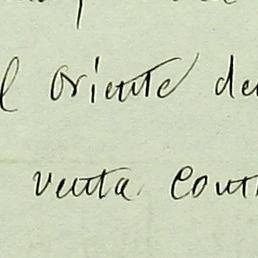 l oriente de
venta cont